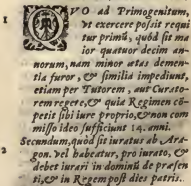 1 QVO ad Primogenitum,
vt exercere possit requi
tur primũ, quòd sit ma
ior quatuor decim an-
norum, nam minor ætas demen-
tia furor, & similia impediunt,
etiam per Tutorem, aut Curato-
rem regere, & quia Regimen cõ-
petit sibi iure proprio, & non com
misso ideo sufficiunt 14. anni.
2 Secundum, quòd sit iuratus ab Ara-
gon. vel habeatur, pro iurato, &
debet iurari in dominũ de præsen
ti, & in Regem post dies patris.